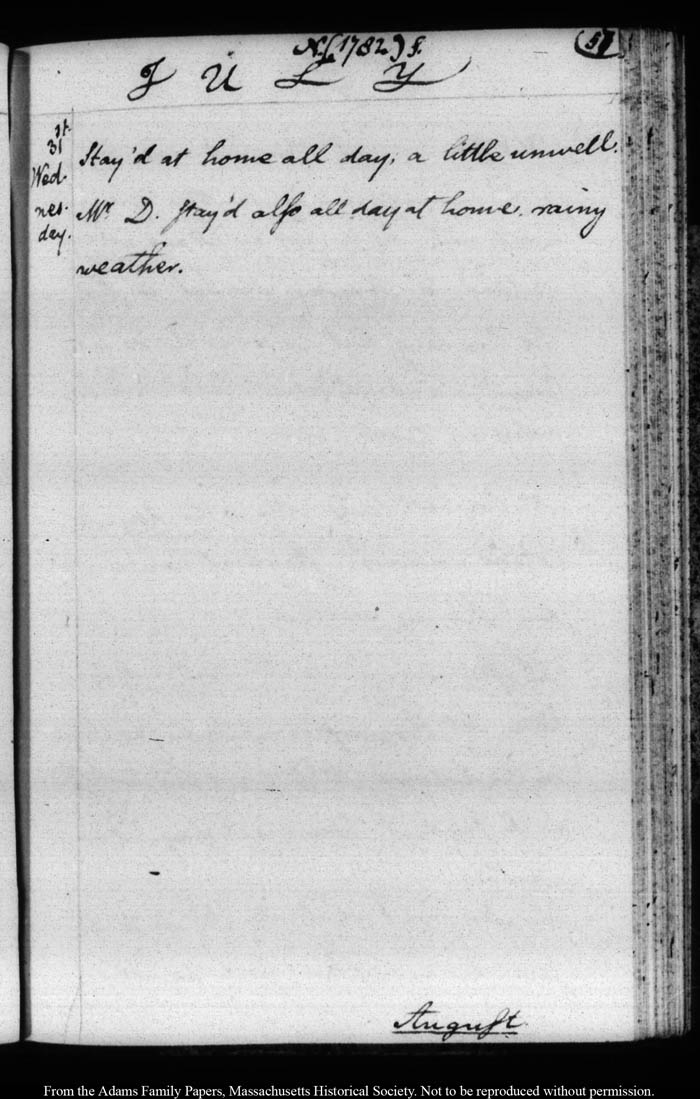 N.S. (1782) f.
(57
JULY
31st
Wed-
nes-
day.
Stay'd at home all day; a little unwell.
Mr. D. stay'd also all day at home. rainy
weather.
August
From the Adams Family Papers, Massachusetts Historical Society. Not to be reproduced without permission.